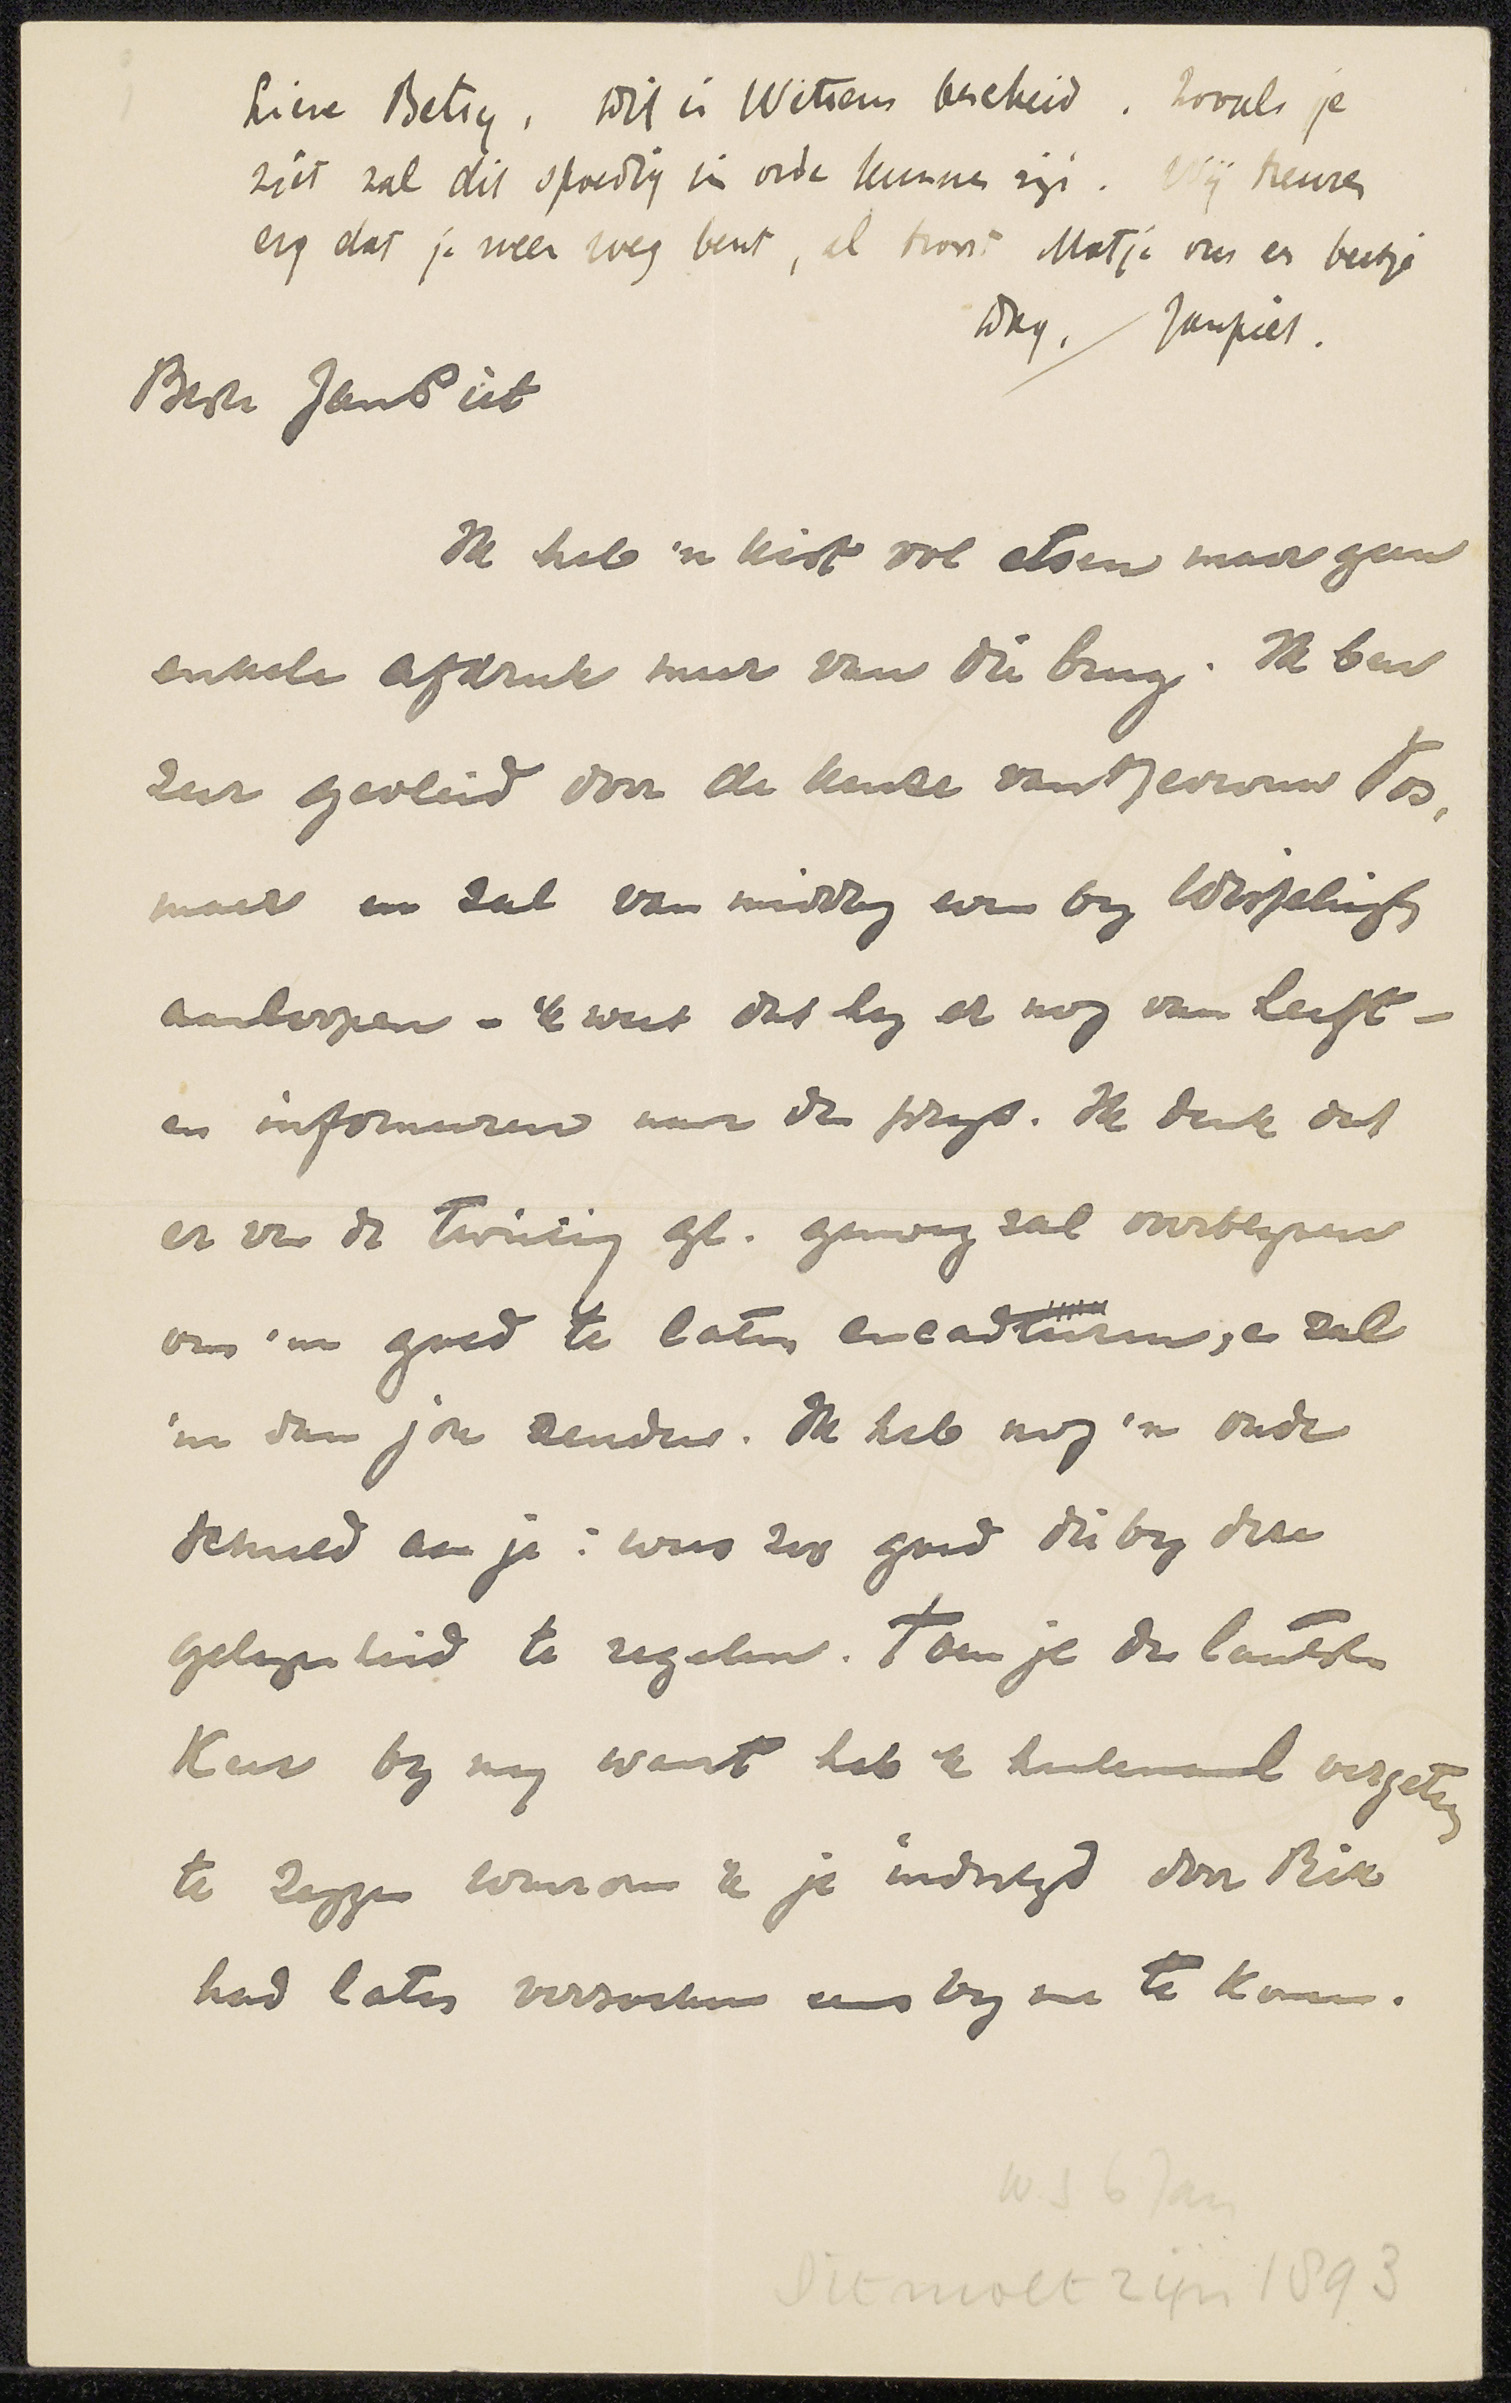 Lieve Betsy, Dit is Witsens bescheid. Zooals je
ziet zal dit spoedig in orde kunnen zijn. Wij treuren
erg dat je weer weg bent, al troost Matje ons een beetje
Dag, Janpiet.
Beste JanPiet
Ik heb 'n kist vol etsen maar geen
enkele afdruk meer van die brug. Ik ben
zeer gevleid door de keuze van Mevrouw Vos,
maar en zal van middag even by Wisselingh
aanloopen - 'k weet dat hy er nog van heeft -
en informeeren naar de prys. Ik denk dat
er van de twintig gl. genoeg zal overblyven
om 'm goed te laten encadreeren, en zal
'm dan jou zenden. Ik heb nog 'n oude
schuld aan je: wees zoo goed die by deze
gelegenheid te regelen. Toen je de laatste
Keer by my waart heb 'k heelemaal vergeten
te zeggen waarom 'k je indertyd door Rik
had laten verzoeken eens by me te komen.
WS 6 Jan
Dit moet zijn 1893